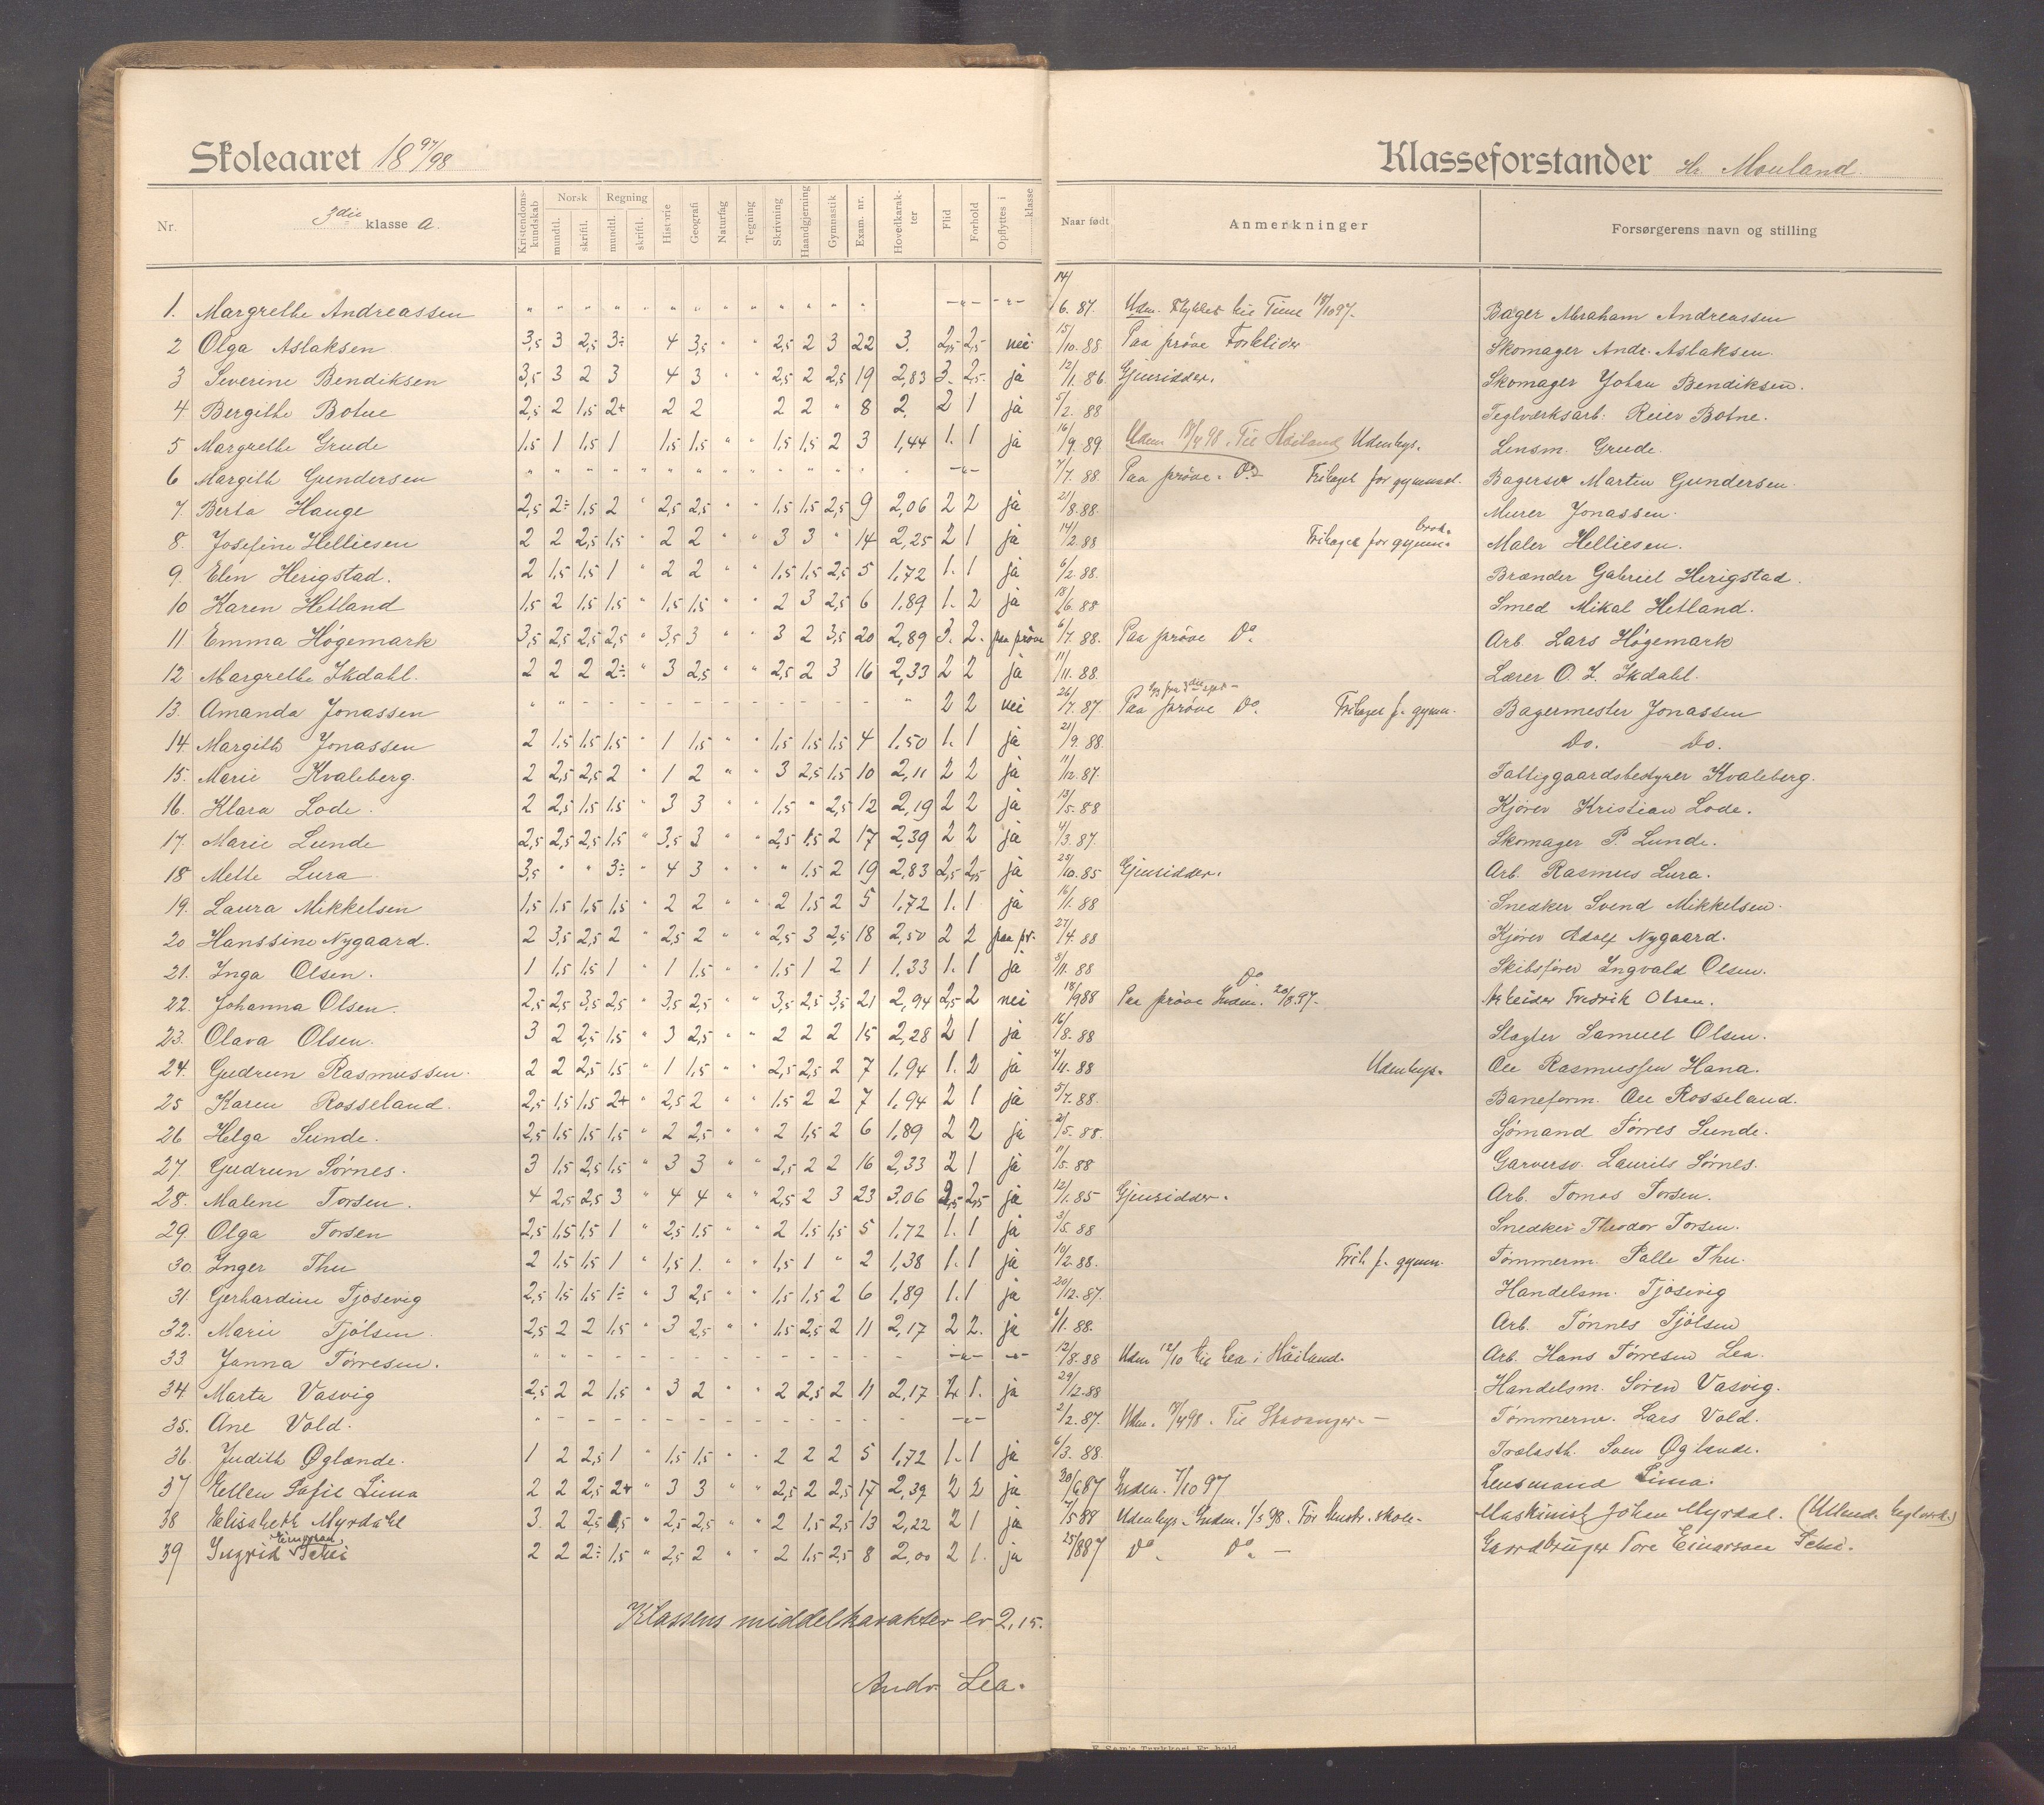 Skoleaaret 18 97/98
Klasseforstander Hr. Mouland.
Nr. 3die klasse A. Kristendomskundskab Norsk mundtl. skriftl. Regning mundtl. skriftl. Historie Geografi Naturfag Tegning Skrivning Haandgjerning Gymnastik Exam. nr. Hovedkarakter Flid Forhold Opflyttes i klasse Naar født Anmerkninger Forsørgerens navn og stilling
1. Margrethe Andreassen " " " " " " " " " " " " " — " — - " - 14/6. 87. Udm. flyttet til Time 18/10 97. Bager Abraham Andreassen
2 Olga Aslaksen 3,5 3 2,5 3÷ 4 3,5 " " 2,5 2 3 22 3. 2,5 2,5 nei 15/10. 88 Paa prøve Skomager Andr. Aslaksen.
3 Severine Bendiksen 3,5 3 2 3 4 3 " " 2,5 2 2,5 19 2,83 3. 2,5. ja 12/1. 86. Gjensidder. Skomager Johan Bendiksen.
4. Bergithe Botne 2,5 2 1,5 2+ 2 2 2 2 " 8 2. 2 1 ja 5/2. 88 Teglværksarb. Reier Botne.
5 Margrethe Grude 1,5 1 1,5 1 1,5 1,5 " " 1,5 1,5 2 3 1,44 1. 1 ja 16/9. 89. Udm 18/4 98. Til Høiland Udenbys. Lensm. Grude.
6 Margith Gundersen " " " " " " " " " " " " — " — 7/7. 88. Paa prøve. Do Fritaget for gymnast. Bagersv Martin Gundersen.
7 Berta Hauge 2,5 2÷ 1,5 2 " 2,5 2,5 " " 1,5 1,5 2,5 9 2,06 2 2 ja 21/8. 88. Murer Jonassen.
8. Josefine Helliesen 2 2 2,5 1,5 " 2 2 " " 3 3 " 14 2,25 2 1 ja 14/2 88 Fritaget for gymn. Maler Helliesen.
9. Elen Herigstad. 2 1,5 1,5 1 " 2 2 " " 1,5 1,5 2,5 5 1,72 1. 1 ja 6/2 88. Brænder Gabriel Herigstad.
10 Karen Hetland 1,5 2 1,5 1,5 " 1,5 1,5 " " 2 3 2,5 6 1,89 1. 2 ja 18/6. 88 Smed Mikal Hetland.
11. Emma Høgemark 3,5 2,5 2,5 2,5 " 3,5 3 " " 3 2 3,5 20 2,89 3. 2. paa prøve 6/7. 88. Paa prøve Do. Arb. Lars Høgemark
12. Margrethe Ikdahl. 2 2 2 2÷ " 3 2,5 " " 2,5 2 3 16 2,33 2 2 ja 11/11. 88. Lærer O. I. Ikdahl.
13. Amanda Jonassen " " - - - - - - - - - - - " 2 2 nei 26/7. 87. Paa prøve Do. Fritaget f. gymn. Bagermester Jonassen
14. Margith Jonassen 2 1,5 1,5 1,5 " 1 1,5 " " 1,5 1,5 1,5 4 1,50 1. 1 ja 21/9. 88. Do. - Do.
15. Marie Kvaleberg. 2 2,5 2,5 2 " 1 2 " " 3 2,5 1,5 10 2,11 2 2 ja 11/12. 87. Fattiggaardsbestyrer Kvaleberg.
16. Klara Lode. 2 2,5 1,5 1,5 " 3 3 " " 1,5 " 2,5 12 2,19 2 2 ja 13/5. 88 Kjører Kristian Lode.
17. Marie Lunde 2,5 2,5 2,5 1,5 " 3,5 3 " " 2,5 1,5 2 17 2,39 2 2 ja 4/3. 87. Skomager P. Lunde.
18 Mette Lura 3,5 " " 3÷ " 4 3 " " " 1,5 2 19 2,83 2,5 2,5 ja 29/10. 85 Gjensidder. Arb. Rasmus Lura.
19. Laura Mikkelsen 1,5 1,5 1,5 1,5 " 2 2 " " 2 1,5 2 5 1,72 1. 1 ja 16/1. 88 Snedker Svend Mikkelsen.
20 Hanssine Nygaard. 2 3,5 2,5 2 " 2,5 2 " " 2,5 3 2,5 18 2,50 2 2 paa pr. 27/4. 88 Kjører Adolf Nygaard.
21. Inga Olsen. 1 1,5 1,5 1 " 1 1,5 " " 1,5 1 2 1 1,33 1. 1 ja 3/11. 88 Skibsfører Ingvald Olsen.
22. Johanna Olsen. 2,5 2,5 3,5 2,5 " 3,5 2,5 " " 3,5 2,5 3,5 21 2,94 2,5 2 nei 18/9 88 Paa prøve Do. Indm. 20/8 97. Arbeider Fredrik Olsen.
23. Olava Olsen. 3 2 2,5 1,5 " 3 2,5 " " 2 2 2 15 2,28 2 1 ja 16/8. 88 Slagter Samuel Olsen.
24. Gudrun Rasmussen. 2 2 2,5 1,5 " 1 1,5 " " 2,5 2,5 2 7 1,94 1. 2 ja 4/11. 88 Udenbys. Ole Rasmussen Hana.
25 Karen Rosseland. 2,5 1,5 1,5 2+ " 2,5 2 " " 1,5 2 2 7 1,94 2 1 ja 5/7. 88. Baneform. Ole Rosseland.
26 Helga Sunde. 2,5 1,5 1,5 1,5 " 2 2,5 " " 2 1,5 2 6 1,89 2 2 ja 21/5. 88. Sjømand Tørres Sunde.
27. Gudrun Sørnes. 3 1,5 2,5 1,5 " 3 3 " " 2,5 2 2 16 2,33 2 1 ja 11/5. 88 Garversv. Laurits Sørnes.
28. Malene Torsen. 4 2,5 2,5 3 " 4 4 " " 2,5 2 3 23 3,06 2,5 2,5 ja 12/1. 85 Gjensidder. Arb. Tomas Torsen.
29. Olga Torsen 2,5 1,5 1,5 1 " 2,5 1,5 " " 2 1,5 1,5 5 1,72 1. 1 ja 3/5. 88 Snedker Theodor Torsen.
30. Inger Thu 2 1,5 1,5 1 " 1,5 1. " " 1,5 1 " 2 1,38 1. 1 ja 10/2. 88. Frit. f. gymn. Tømmerm. Palle Thu.
31. Gerhardine Tjosevig 2,5 1,5 1,5 1÷ " 3 2,5 " " 1,5 1,5 2 6 1,89 1. 1 ja 20/12. 87. Handelsm. Tjosevig
32. Marie Tjølsen. 2,5 2 2 1,5 " 3 2,5 " " 1,5 2,5 2 11 2,17 2 2. ja 6/11. 88. Arb. Tønnes Tjølsen
33. Janna Tørresen. " " - - - - - - - - - - - - — " — — " — 12/8. 88 Udm 12/10 til Lea i Høiland. Arb. Hans Tørresen Lea.
34. Marta Vasvig 2,5 2 2 1,5 " 3 2 " " 2 2,5 2 11 2,17 2. 1. ja 29/12. 88 Handelsm. Søren Vasvig.
35. Ane Vold. " - - - - - - - - - - - - - — " — 2/2. 87. Udm. 7/4 98. Til Stavanger. — Tømmerm. Lars Vold.
36. Judith Øglænde. 1 2 2,5 1 " 1,5 1,5 " " 2 2 2 5 1,72 1. 1 ja 6/3. 88. Trælasth. Sven Øglænde.
37 Ellen Sofie Lima 2 2 2,5 2+ " 3 3 " " 2,5 2 2,5 17 2,39 2 2 ja 30/6 87 Indm. 7/10 97 Lensmand Lima.
38 Elisabeth Myrdahl 3. 2 2,5 2,5 " 2,5 2,5 " " 2 1,5 2,5 13 2,22 2 1 ja 7/5 88 Udenbys. Indm. 1/5 98. Før skole. Maskinist Johan Myrdal.
39 Ingrid 2 2 2÷ 1,5 " 2,5 2 " " 2 1,5 2,5 8 2,00 2 1. ja 25/8 87 Do. Do. — Gaardbruger Tore Einarsen
Klassens middelkarakter er 2,15.
Andr. Lea.